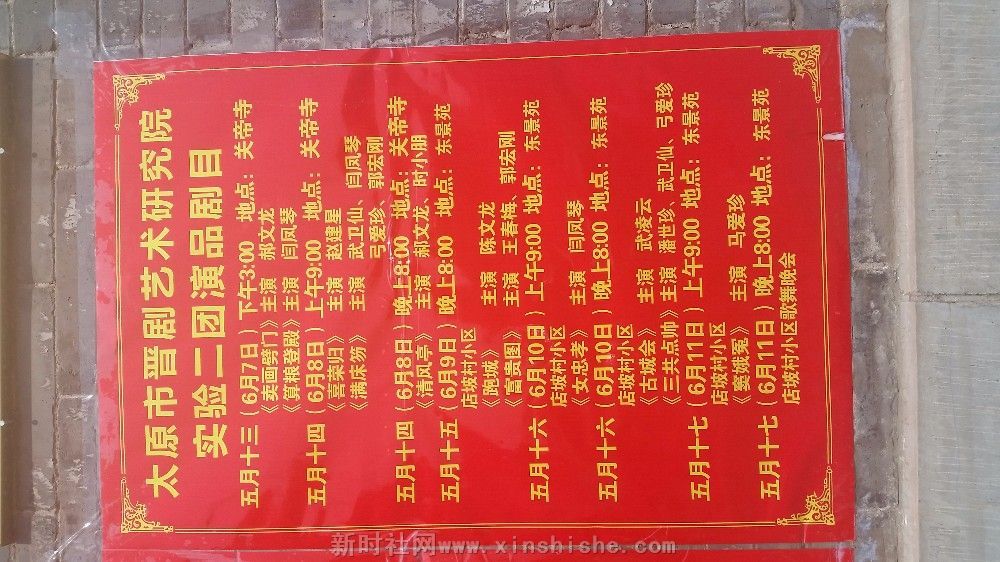 太原市晋剧艺术研究院
实验二团演品剧目
五月十三（6月7日）下午3:00 地点：关帝寺
《卖画劈门》主演 郝文龙
《算粮登殿》主演 闫凤琴
五月十四（6月8日）上午9:00 地点：关帝寺
《喜荣归》 主演 赵建星
《满床笏》 主演 武卫仙、闫凤琴
弓爱珍、郭宏刚
五月十四（6月8日）晚上8:00 地点：关帝寺
《清风亭》 主演 郝文龙、时小朋
五月十五（6月9日）晚上8:00 地点：东景苑
店坡村小区
《跑城》 主演 陈文龙
《富贵图》 主演 王春梅、郭宏刚
五月十六（6月10日）上午9:00 地点：东景苑
店坡村小区
《女忠孝》 主演 闫凤琴
五月十六（6月10日）晚上8:00 地点：东景苑
店坡村小区
《古城会》 主演 武凌云
《三共点帅》主演 潘世珍、武卫仙、弓爱珍
五月十七（6月11日）上午9:00 地点：东景苑
店坡村小区
《窦娥冤》 主演 马爱珍
五月十七（6月11日）晚上8:00 地点：东景苑
店坡村小区歌舞晚会
新时社网www.xinshishe.com